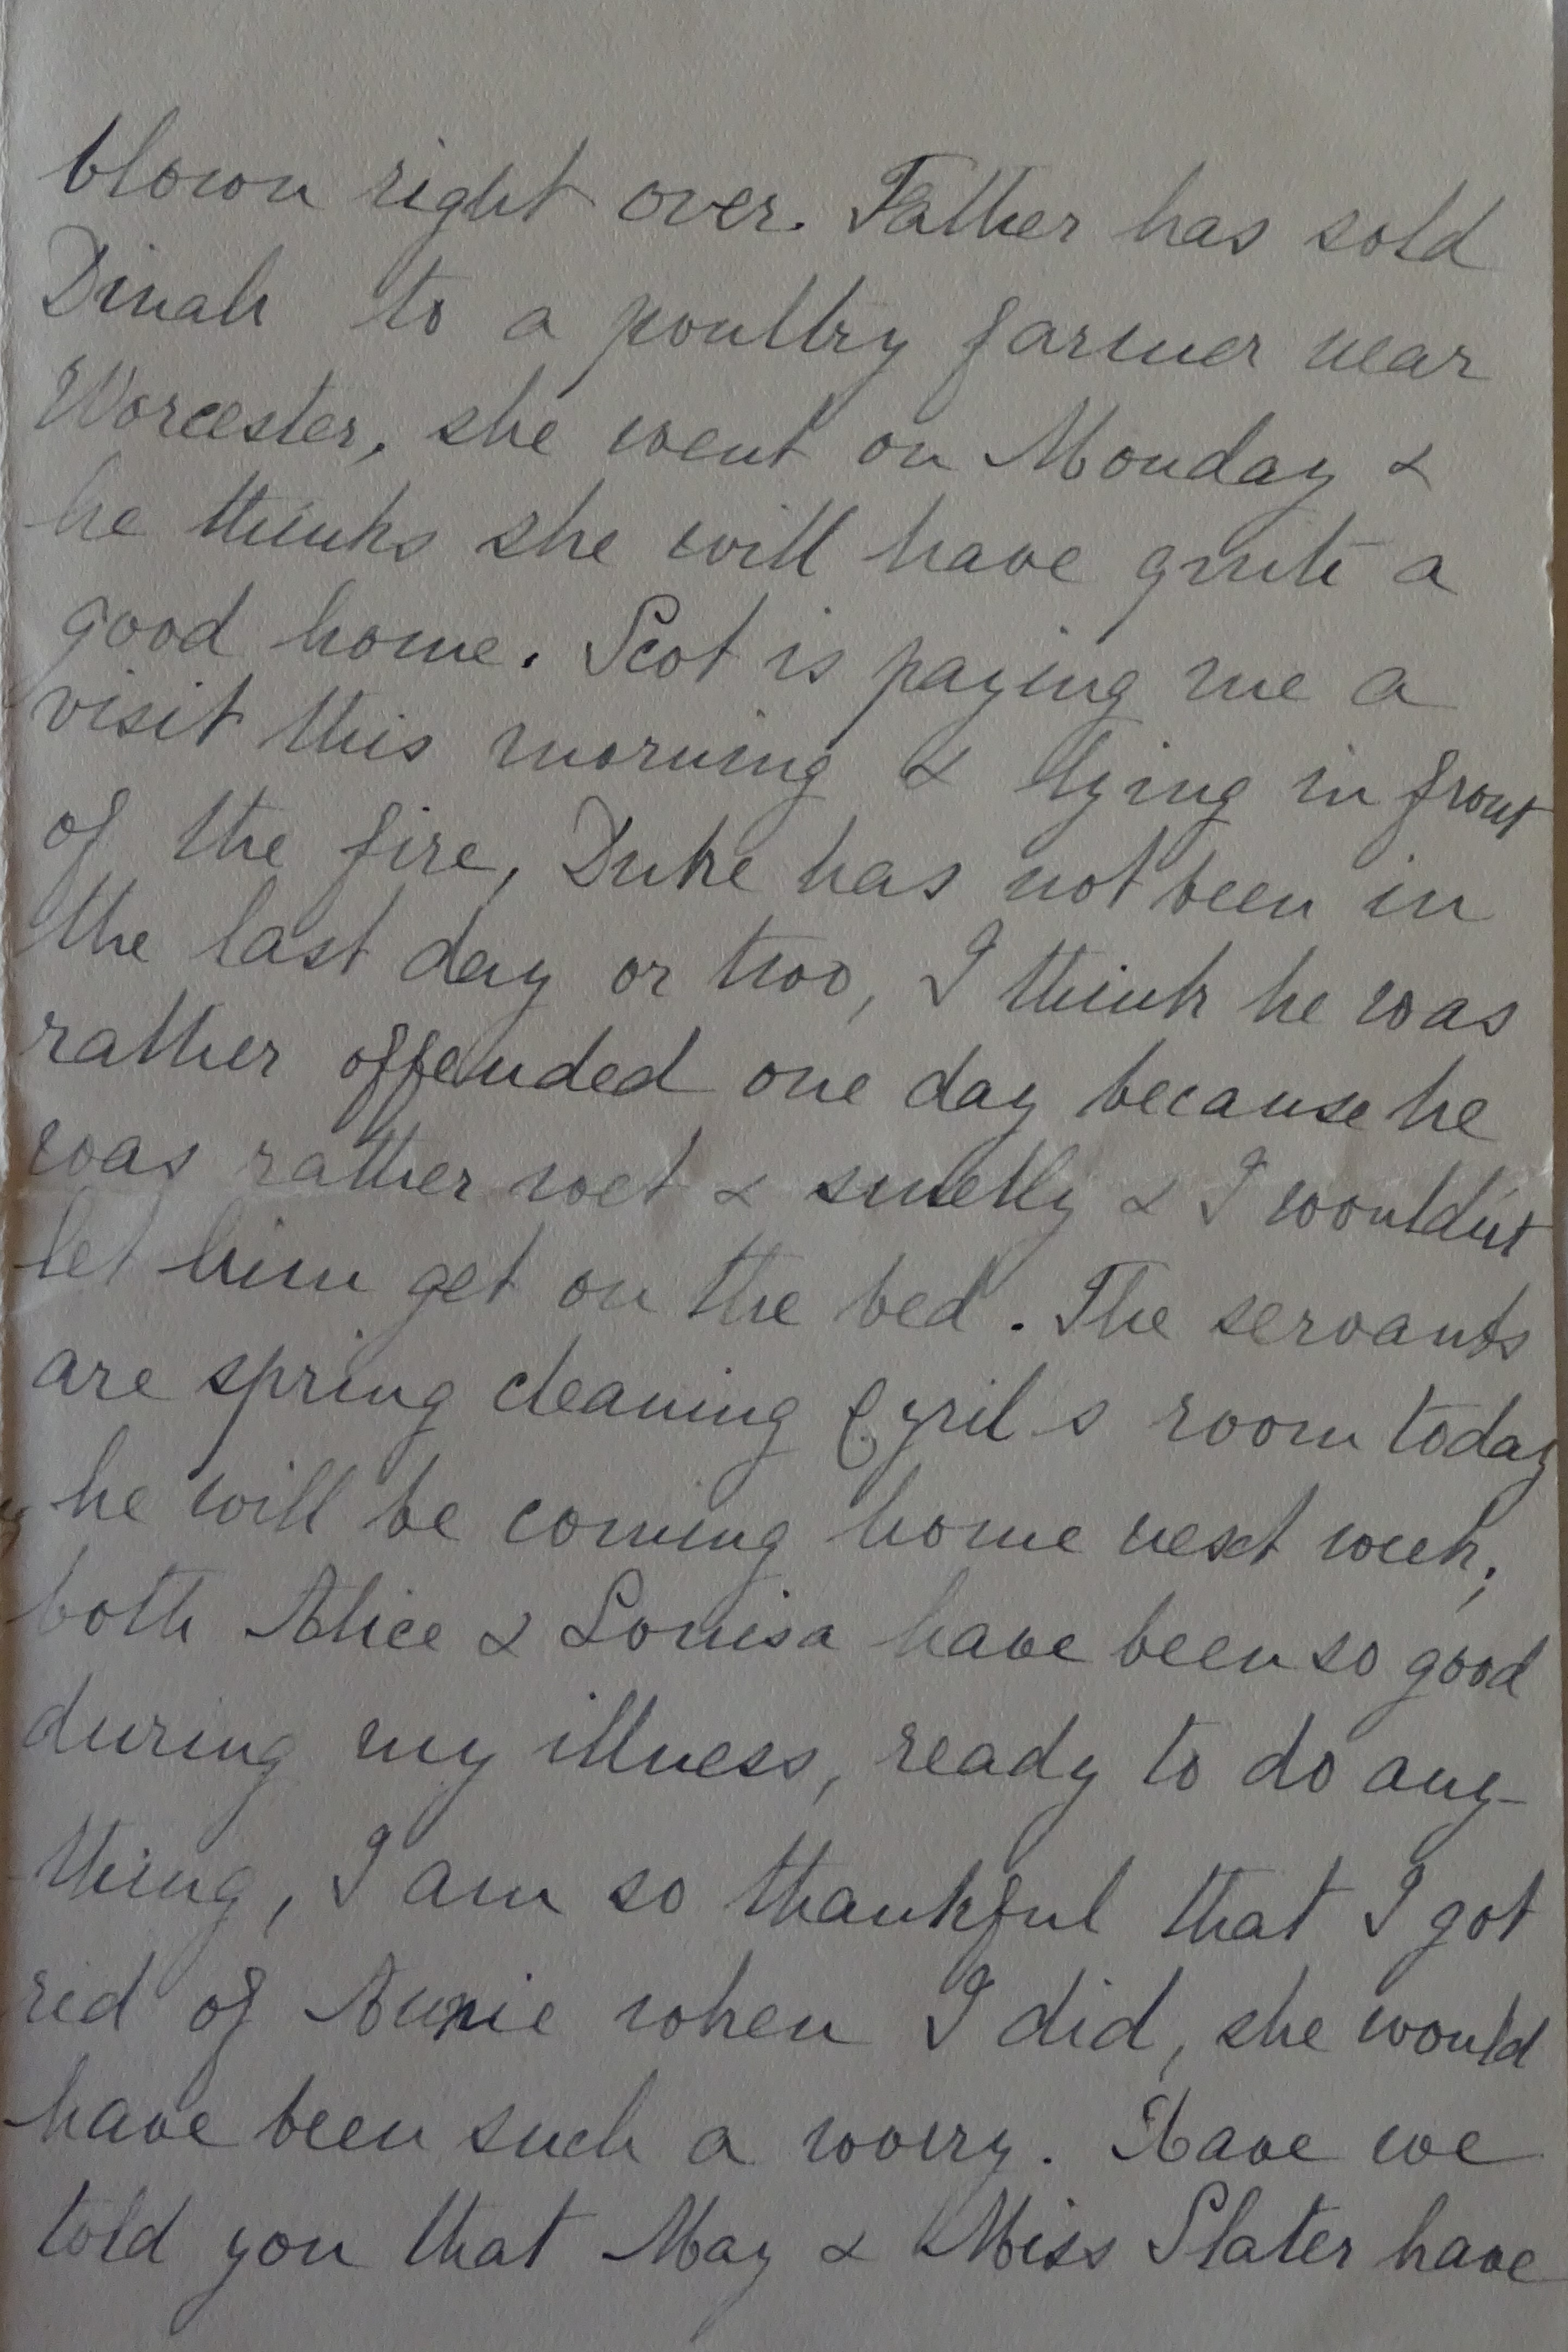 blown right over. Father has sold
Dinah to a poultry farmer near
Worcester, she went on Monday &
he thinks she will have quite a
good home. Scot is paying me a
visit this morning & lying in front
of the fire, Duke has not been in
the last day or two, I think he was
rather offended one day because he
was rather wet & smelly & I wouldn't
let him get on the bed. The servants
are spring cleaning Cyril's room today
he will be coming home next week;
both Alice & Louisa have been so good
during my illness, ready to do any-
thing, I am so thankful that I got
rid of Annie when I did, she would
have been such a worry. Have we
told you that May & Miss Slater have